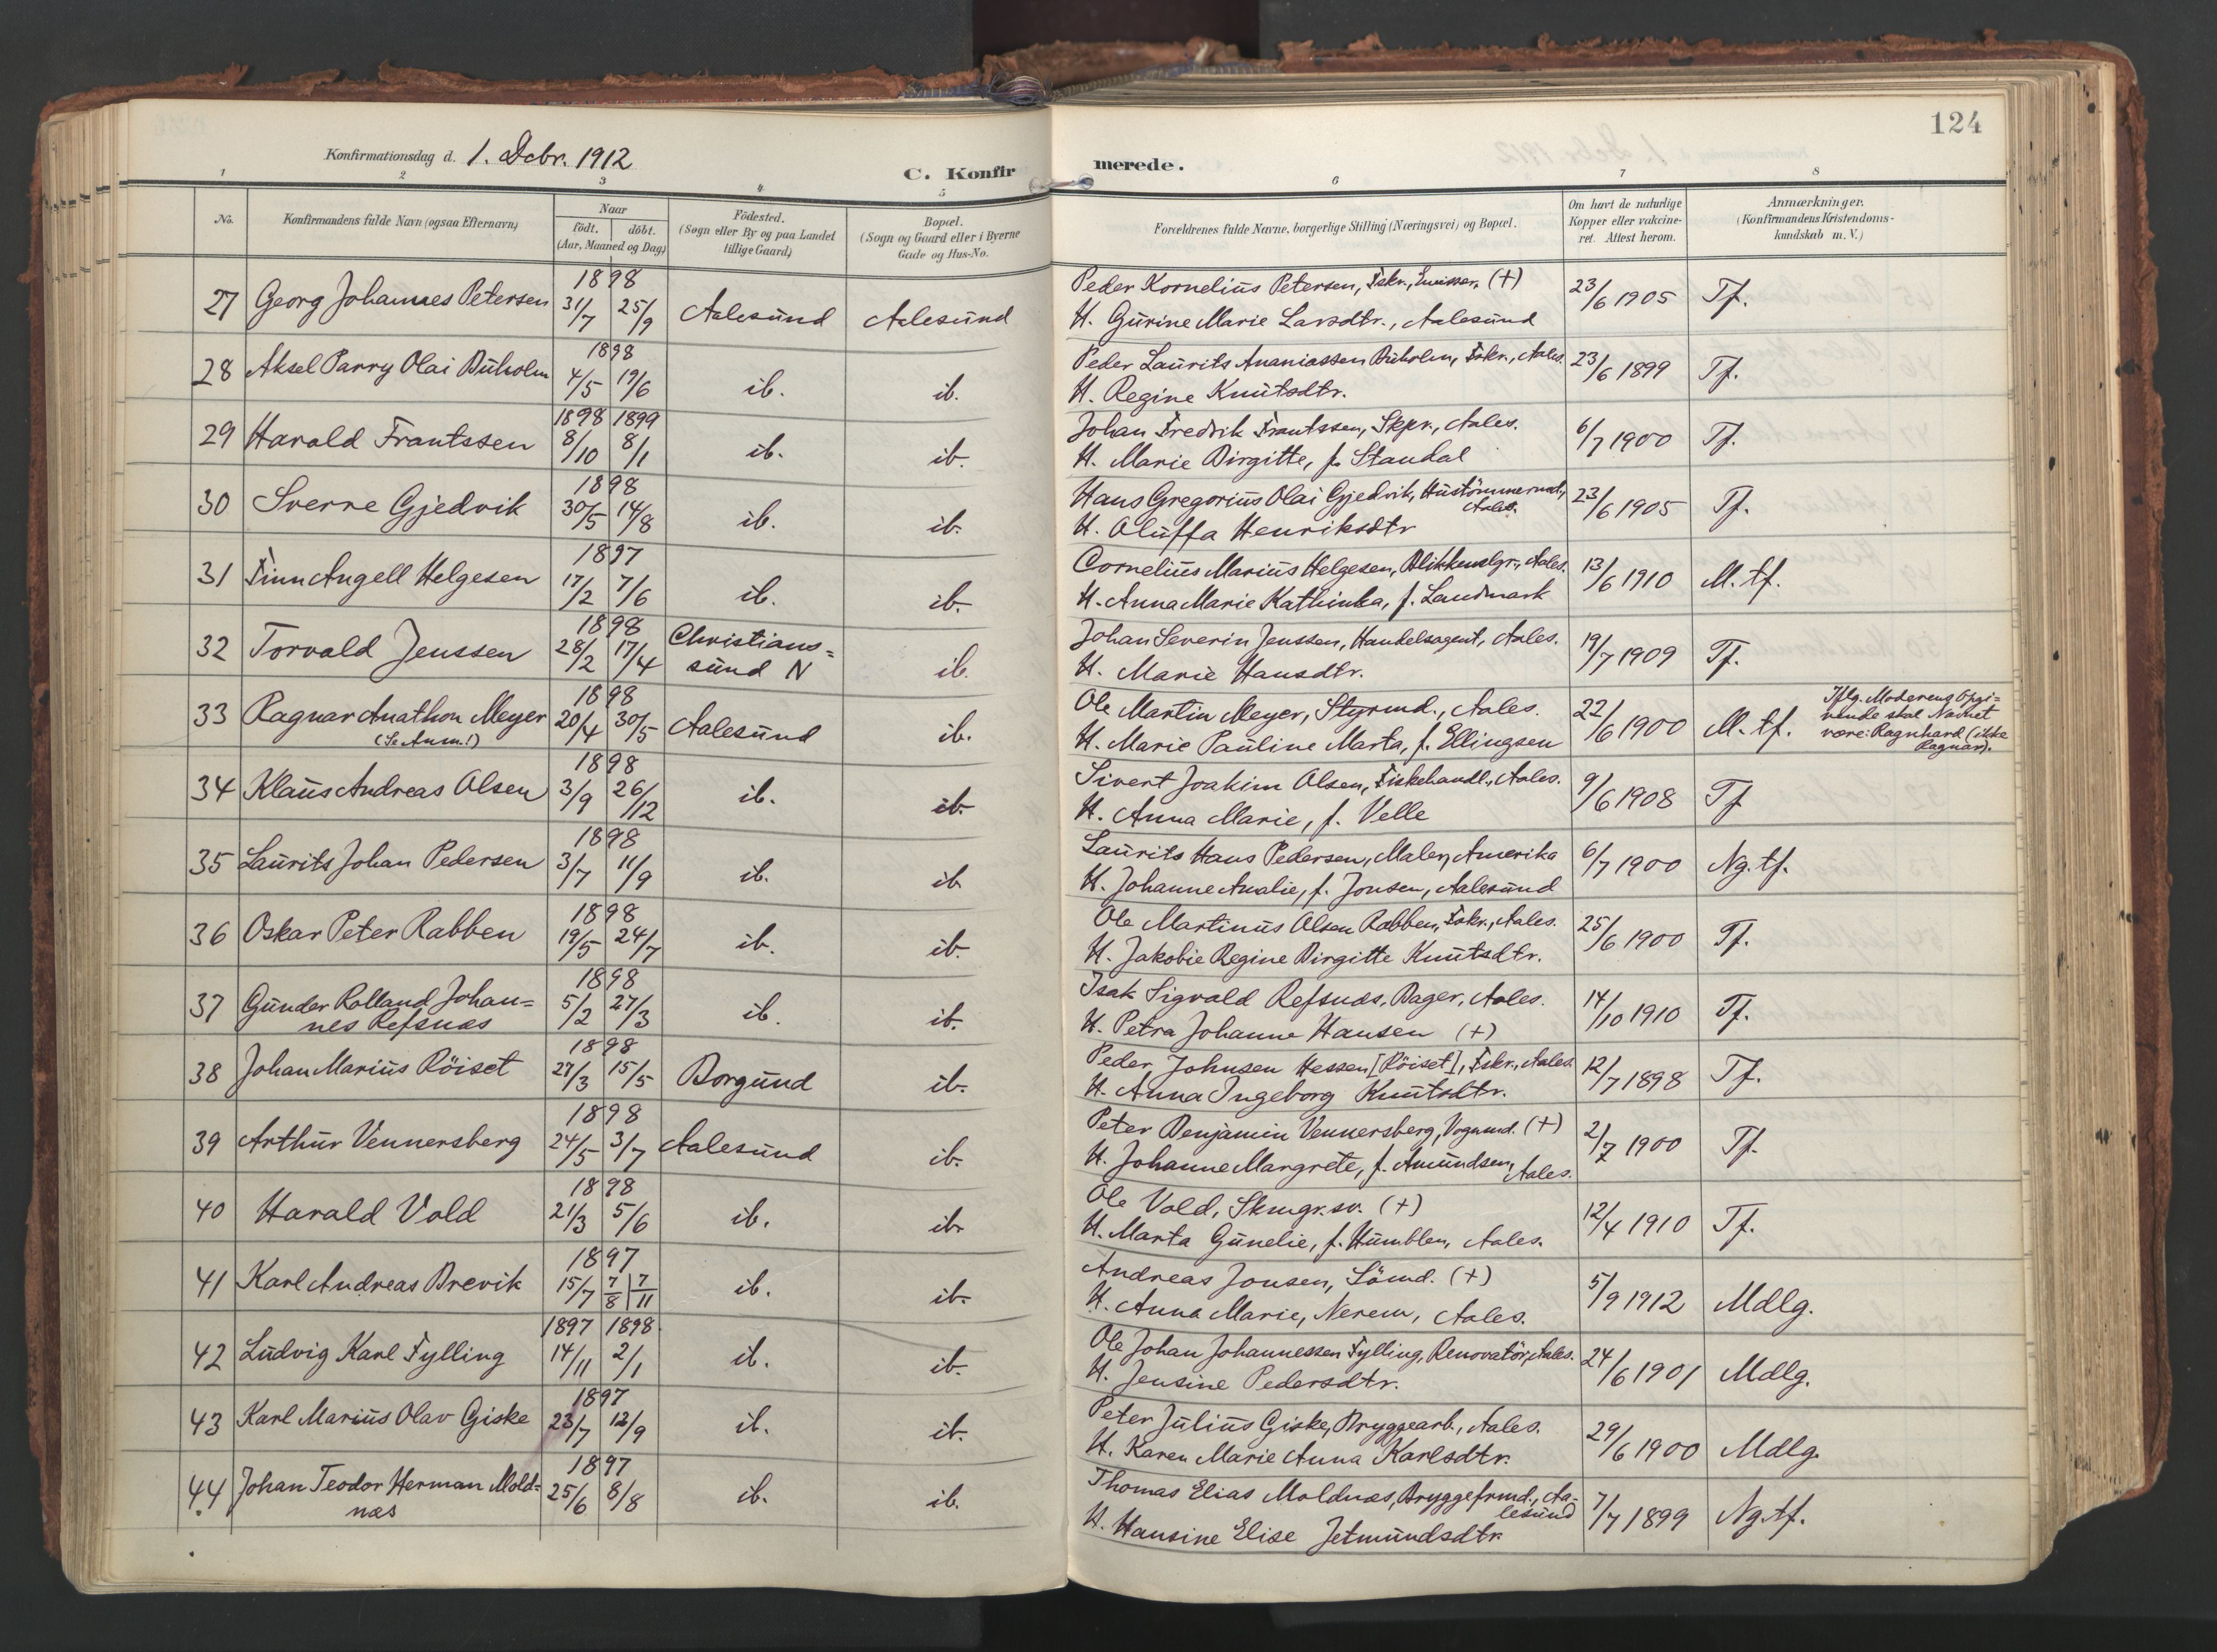 124
Konfirmationsdag d. 1. Decbr. 1912
C. Konfirmerede.
1 2 3 4 5 6 7 8
No.
Konfirmandens fulde Navn (ogsaa Efternavn)
Naar
födt. döbt.
(Aar, Maaned og Dag)
Födested.
(Sogn eller By og paa Landet
tillige Gaard)
Bopæl.
(Sogn og Gaard eller i Byerne
Gade og Hus-No.
Forældrenes fulde Navne, borgerlige Stilling (Næringsvei) og Bopæl.
Om havt de naturlige
Kopper eller vakcine-
ret. Attest herom.
Anmærkninger.
(Konfirmandens Kristendoms-
kundskab m. V.)
1898
27 Georg Johannes Petersen 31/7 25/9 Aalesund Aalesund
Peder Kornelius Petersen, Fskr., Emissær. (+)
H. Gurine Marie Larsdtr., Aalesund
23/6 1905 Tf.
1898
28 Aksel Parry Olai Buholm 4/5 19/6 ib. ib.
Peder Laurits Ananiassen Buholm, Fskr., Aales.
H. Regine Knutsdtr.
23/6 1899 Tf.
1898 1899
29 Harald Frantssen 8/10 8/1 ib. ib.
Johan Fredrik Frantssen, Skpr., Aales.
H. Marie Birgitte, f. Standal
6/7 1900 Tf.
1898
30 Sverre Gjedvik 30/5 14/8 ib. ib.
Hans Gregorius Olai Gjedvik, Hustömmermd.,
Aales.
H. Oluffa Henriksdtr
23/6 1905 Tf.
1897
31 Finn Angell Helgesen 17/2 7/6 ib. ib.
Cornelius Marius Helgesen, Blikkenslgr., Aales.
H. Anna Marie Kathinka, f. Landmark
13/6 1910 M. tf.
1898
32 Torvald Jenssen 28/2 17/4 Christians=
sund N ib.
Johan Severin Jenssen, Handelsagent, Aales.
H. Marie Hansdtr.
19/7 1909 Tf.
1898
33 Ragnar Anathon Meyer 20/4 30/5 Aalesund ib.
(Se Anm.!)
Ole Martin Meyer, Styrmd., Aales.
H. Marie Pauline Marta, f. Ellingsen
22/6 1900 M. tf.
Iflg. Moderens Opgi-
vende skal Navnet
være: Ragnhard (ikke
Ragnar).
1898
34 Klaus Andreas Olsen 3/9 26/12 ib. ib.
Sivert Joakim Olsen, Fiskehandl., Aales.
H. Anna Marie, f. Velle
9/6 1908 Tf
1898
35 Laurits Johan Pedersen 3/7 11/9 ib. ib
Laurits Hans Pedersen, Maler, Amerika
H. Johanne Amalie, f. Jonsen, Aalesund
6/7 1900 Ng. tf.
1898
36 Oskar Peter Rabben 19/5 24/7 ib. ib.
Ole Martinus Olsen Rabben, Fskr., Aales.
H. Jakobie Regine Birgitte Knutsdtr.
25/6 1900 Tf.
1898
37 Gunder Rolland Johan=
nes Refsnæs 5/2 27/3 ib. ib.
Isak Sigvald Refsnæs, Bager, Aales.
H. Petra Johanne Hansen (+)
14/10 1910 Tf.
1898
38 Johan Marius Röiset 27/3 15/5 Borgund ib.
Peder Johnsen Hessen [Röiset], Fskr., Aales.
H. Anna Ingeborg Knutsdtr.
12/7 1898 Tf.
1898
39 Arthur Vennersberg 24/5 3/7 Aalesund ib.
Peter Benjamin Vennersberg, Vognmd. (+)
H. Johanne Margrete, f. Amundsen,
Aales.
2/7 1900 Tf.
1898
40 Harald Vold 21/3 5/6 ib. ib.
Ole Vold, Skmgr.sv. (+)
H. Marta Gunelie, f. Humblen, Aales.
12/4 1910 Tf.
1897
41 Karl Andreas Brevik 15/7 7/8 7/11 ib. ib.
Andreas Jonsen, Sömd. (+)
H. Anna Marie, Nerem, Aales.
5/9 1912 Mdlg.
1897 1898
42 Ludvig Karl Fylling 14/11 2/1 ib. ib.
Ole Johan Johannessen Fylling, Renovatör, Aales.
H. Jensine Pedersdtr.
24/6 1901 Mdlg.
1897
43 Karl Marius Olav Giske 23/7 12/9 ib. ib.
Peter Julius Giske, Bryggearb., Aales.
H. Karen Marie Anna Karlsdtr.
29/6 1900 Mdlg.
1897
44 Johan Teodor Herman Mold=
næs 25/6 8/8 ib. ib.
Thomas Elias Moldnæs, Bryggefrmd., Aa-
lesund
H. Hansine Elise Jetmundsdtr.
7/7 1899 Ng. tf.